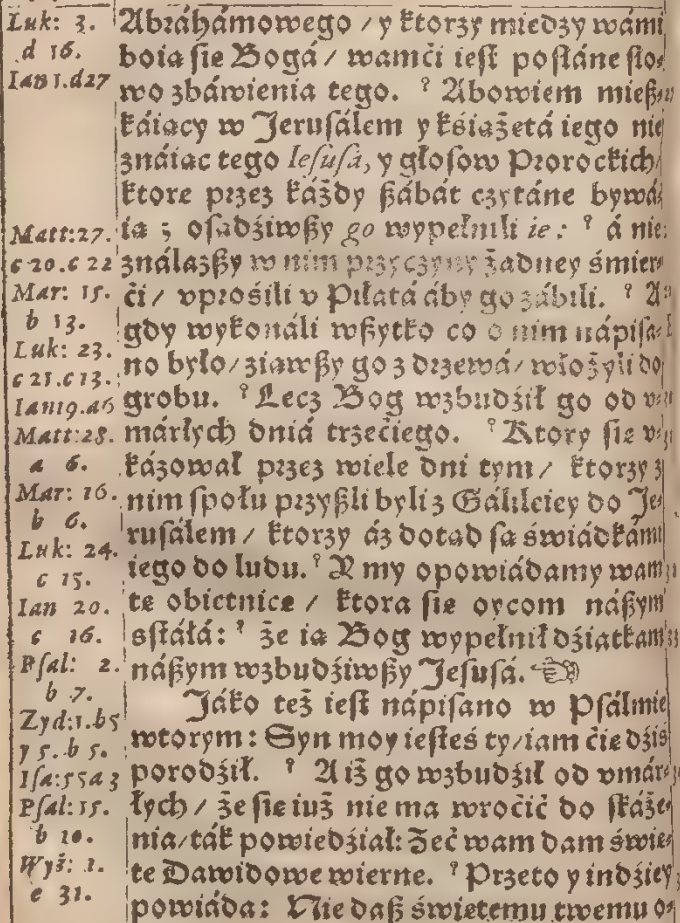 Luk: 3.
d 16.
Ian 1.d27
Matt:27.
c 20.c 22
Mar: 15.
b 13.
Luk: 23.
c 21.c 13.
Ian19.a6
Matt:28.
a 6.
Mar: 16.
b 6.
Luk: 24.
c 15.
Ian 20.
c 16.
Psal: 2.
b 7.
Zyd:1.b5
y 5.b 5.
Isa:55a3
Psal:15.
b 10.
Wyż: 2.
e 31.
Abráhámowego / y ktorzy miedzy wámi
boia ſie Bogá / wamći ieſt poſłáne ſło⸗
wo zbáwienia tego. ? Abowiem mieß⸗
káiacy w Jeruſálem y kśiażetá iego nie
znáiac tego Ieſuſá, y głoſow Prorockich/
ktore przez káżdy ßábát czytáne bywá⸗
ia ; oſadźiwßy go wypełnili ie: ? á nie
ználazßy w nim przyczyny żadney śmier⸗
ći / vprośili v Piłatá áby go zábili. ? A
gdy wykonáli wßytko co o nim nápiſa⸗
no było / ziawßy go z drzewá / włożyli do
grobu. ? Lecz Bog wzbudźił go od v⸗
márłych dniá trzećiego. ? Ktory ſie v⸗
kázował przez wiele dni tym / ktorzy z
nim ſpołu przyßli byli z Gálileiey do Je⸗
ruſálem / ktorzy áż dotad ſa świádkámi
iego do ludu. ? A my opowiádamy wam
te obietnice / ktora ſie oycom náßym
sſtáłá: ? że ia Bog wypełnił dźiatkam
náßym wzbudźiwßy Jeſuſá. ☜
Jáko też ieſt nápiſano w Pſálmie
wtorym: Syn moy ieſteś ty / iam ćie dźiś
porodźił. ? A iż go wzbudźił od vmár⸗
łych / że ſie iuż nie ma wroćić do ſkáże⸗
nia / ták powiedźiał: Żeć wam dam świe⸗
te Dawidowe wierne. ? Przeto y indźiey
powiáda: Nie daß świetemu twemu o⸗